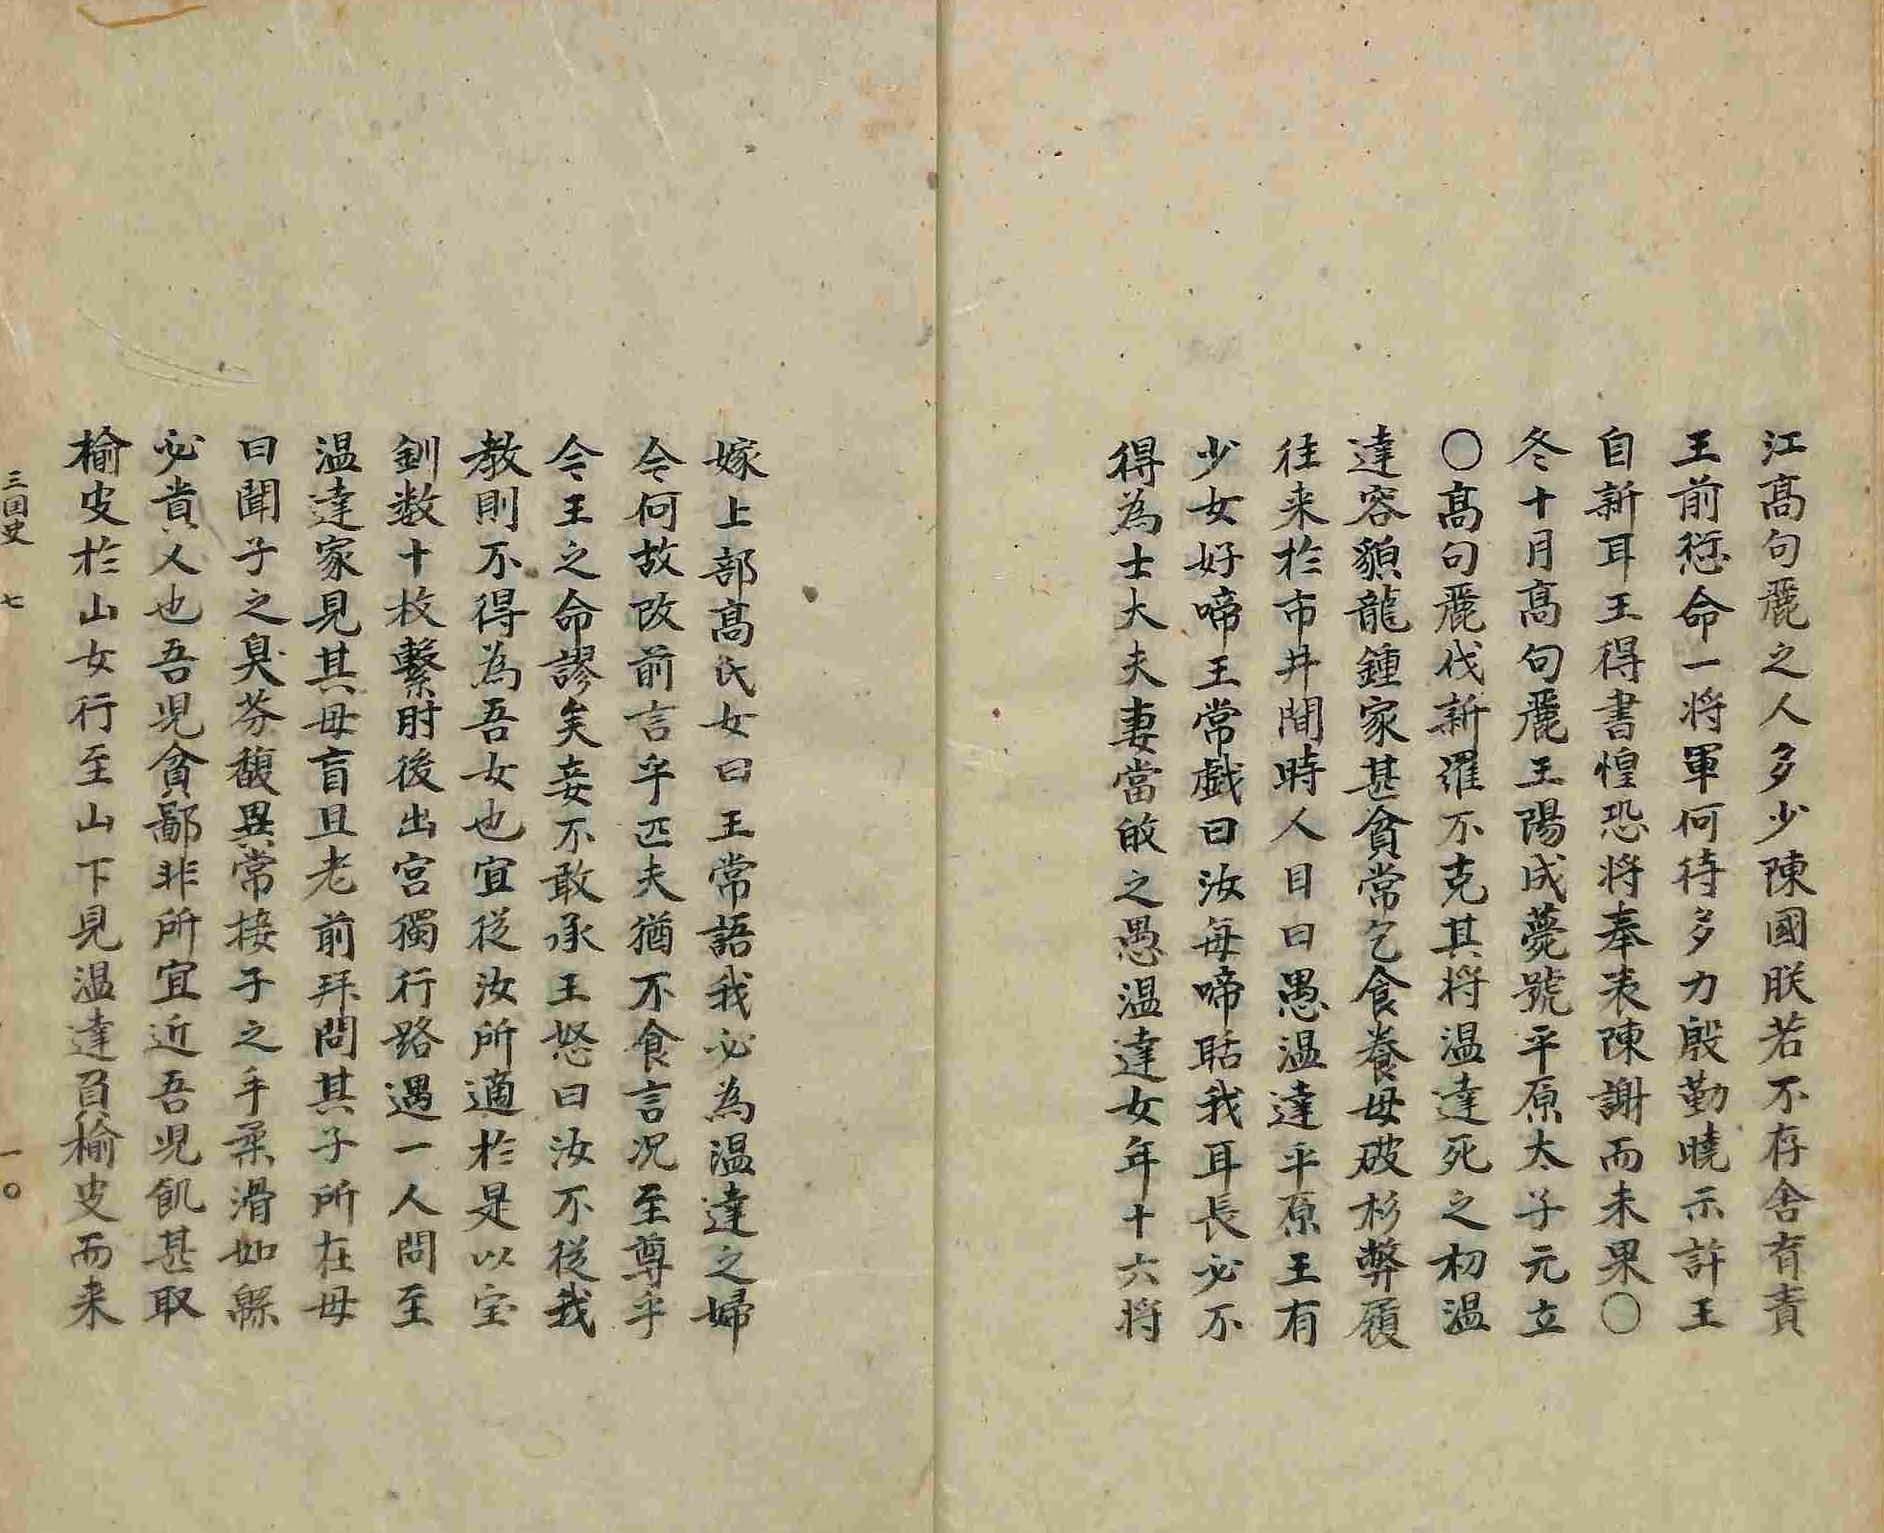 江髙句麗之人多少陳國朕若不存舍育責
王前愆命一将軍何待多力殷勤曉示許王
自新耳王得書惶恐将奉表陳謝而未果〇
冬十月髙句麗王陽成薨號平原太子元立
〇髙句麗伐新羅不克其将温達死之初温
達容貌龍鍾家甚貧常乞食養母破衫弊履
往来於市井間時人目曰愚温達平原王有
少女好啼王常戯曰汝每啼聒我耳長必不
得為士大夫妻當㱕之愚温達女年十六将
嫁上部髙氏女曰王常語我必為温達之婦
今何故改前言乎匹夫猶不食言况至尊乎
今王之命謬矣妾不敢承王怒曰汝不從我
教則不得為吾女也宜從汝所適於是以宝
釧数十枚繫肘後出宫獨行路遇一人問至
温達家見其母盲且老前拜問其子所在母
曰聞子之臭芬馥異常接子之手柔滑如緜
必貴人也吾児貧鄙非所宜近吾児飢甚取
榆皮於山女行至山下見温達負榆皮而来
三国史 七 一〇